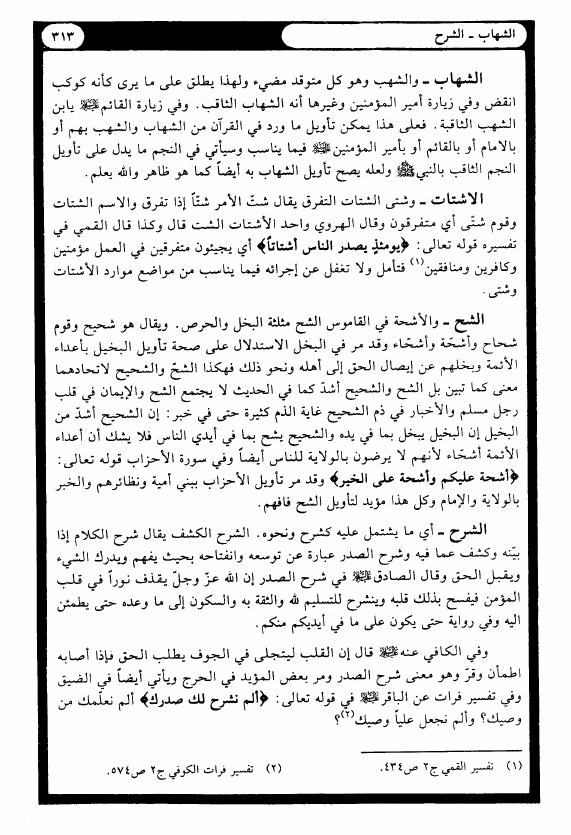 الشهاب ـ الشرح
٣١٣
الشهاب ـ والشهب وهو كل متوقد مضيء ولهذا يطلق على ما يرى كأنه كوكب
انقض وفي زيارة أمير المؤمنين وغيرها أنه الشهاب الثاقب. وفي زيارة القائم ﷺ يابن
الشهب الثاقبة. فعلى هذا يمكن تأويل ما ورد في القرآن من الشهاب والشهب بهم أو
بالامام أو بالقائم أو بأمير المؤمنين ﷺ فيما يناسب وسيأتي في النجم ما يدل على تأويل
النجم الثاقب بالنبي ﷺ ولعله يصح تأويل الشهاب به أيضاً كما هو ظاهر والله يعلم.
الاشتات ـ وشتى الشتات التفرق يقال شتّ الأمر شتّاً إذا تفرق والاسم الشتات
وقوم شتّى أي متفرقون وقال الهروي واحد الأشتات الشت قال وكذا قال القمي في
تفسيره قوله تعالى: ﴿يومئذٍ يصدر الناس أشتاتاً﴾ أي يجيئون متفرقين في العمل مؤمنين
وكافرين ومنافقين(١) فتأمل ولا تغفل عن إجرائه فيما يناسب من مواضع موارد الأشتات
وشتى.
الشح ـ والأشحة في القاموس الشح مثلثة البخل والحرص. ويقال هو شحيح وقوم
شحاح وأشحّة وأشحّاء وقد مر في البخل الاستدلال على صحة تأويل البخيل بأعداء
الأئمة وبخلهم عن إيصال الحق إلى أهله ونحو ذلك فهكذا الشحّ والشحيح لاتحادهما
معنى كما تبين بل الشح والشحيح أشدّ كما في الحديث لا يجتمع الشح والإيمان في قلب
رجل مسلم والأخبار في ذم الشحيح غاية الذم كثيرة حتى في خبر: إن الشحيح أشدّ من
البخيل إن البخيل يبخل بما في يده والشحيح يشح بما في أيدي الناس فلا يشك أن أعداء
الأئمة أشحّاء لأنهم لا يرضون بالولاية للناس أيضاً وفي سورة الأحزاب قوله تعالى:
﴿أشحة عليكم وأشحة على الخير﴾ وقد مر تأويل الأحزاب ببني أمية ونظائرهم والخبر
بالولاية والإمام وكل هذا مؤيد لتأويل الشح فافهم.
الشرح ـ أي ما يشتمل عليه كشرح ونحوه. الشرح الكشف يقال شرح الكلام إذا
بيّنه وكشف عما فيه وشرح الصدر عبارة عن توسعه وانفتاحه بحيث يفهم ويدرك الشيء
ويقبل الحق وقال الصادق ﷺ في شرح الصدر إن الله عزّ وجلّ يقذف نوراً في قلب
المؤمن فيفسح بذلك قلبه وينشرح للتسليم لله والثقة به والسكون إلى ما وعده حتى يطمئن
اليه وفي رواية حتى يكون على ما في أيديكم منكم.
وفي الكافي عنه ﷺ قال إن القلب ليتجلى في الجوف يطلب الحق فإذا أصابه
اطمأن وقرّ وهو معنى شرح الصدر ومر بعض المؤيد في الحرج ويأتي أيضاً في الضيق
وفي تفسير فرات عن الباقر ﷺ في قوله تعالى: ﴿ألم نشرح لك صدرك﴾ ألم نعلّمك من
وصيك؟ وألم نجعل علياً وصيك(٢)؟
(١) تفسير القمي ج٢ ص٤٣٤.
(٢) تفسير فرات الكوفي ج٢ ص٥٧٤.